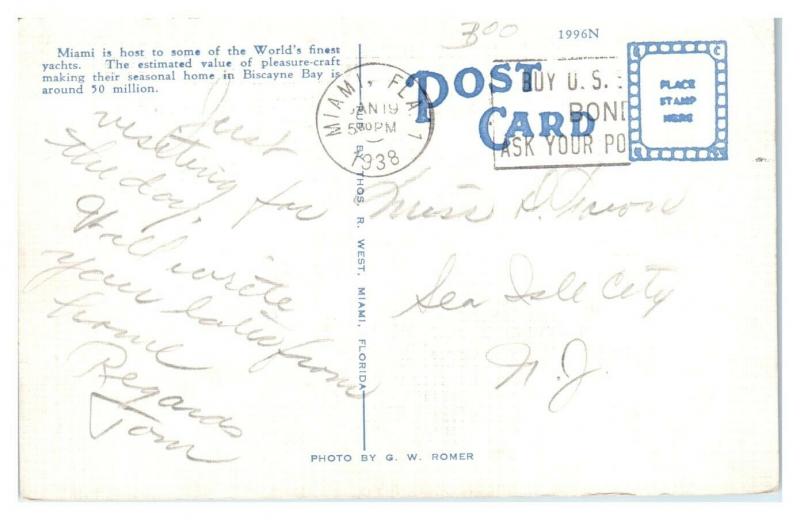 Miami is host to some of the World's finest
yachts. The estimated value of pleasure-craft
making their seasonal home in Biscayne Bay is
around 50 million.
300
1996N
POST
CARD
PLACE
STAMP
HERE
MIAMI, FLA 1
JAN 19
5 30 PM
1938
BUY U.S. S
BOND
ASK YOUR PO
Just
viseting for
the day,
Will write
you later from
home
Regards
Tom
BY THOS. R. WEST, MIAMI, FLORIDA
Miss D.
Sea Isle City
N.J.
PHOTO BY G. W. ROMER